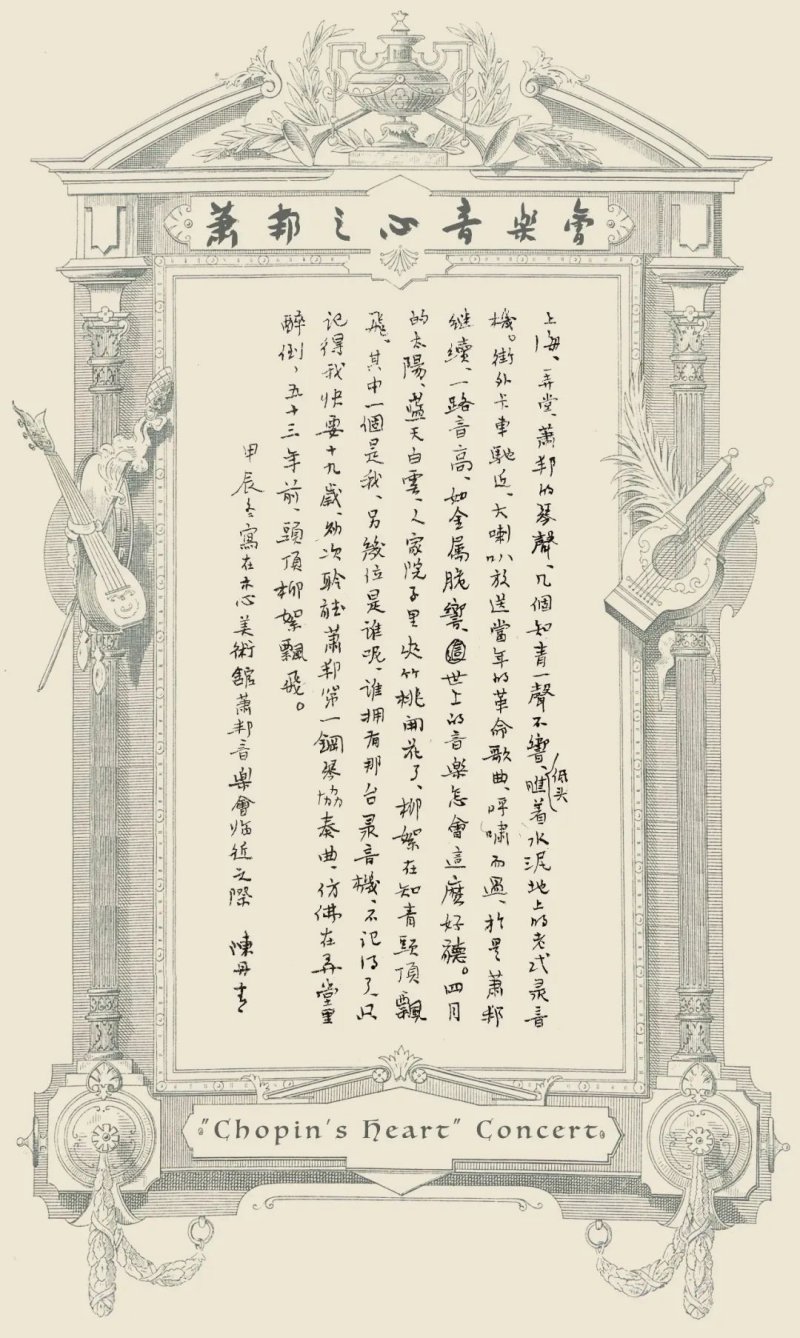 蕭邦之心音樂會
上海、弄堂、蕭邦的琴聲、几個知青一聲不響、低头瞧着水泥地上的老式录音
機。街外卡車馳近、大喇叭放送當年的革命歌曲、呼嘯而過、於是蕭邦
继續、一路音高、如金属脆響、這世上的音樂怎會這麽好聽。四月
的太陽、蓝天白雲、人家院子里夾竹桃開花了、柳絮在知青頭頂飄
飛、其中一個是我、另幾位是誰呢、谁拥有那台录音機、不记得了、只
记得我快要十九歲、初次聆聽蕭邦第一鋼琴協奏曲、仿佛在弄堂里
醉倒、五十三年前、頭頂柳絮飄飛。
甲辰冬寫在木心美術館蕭邦音樂會临近之際 陳丹青
"Chopin's Heart" Concert